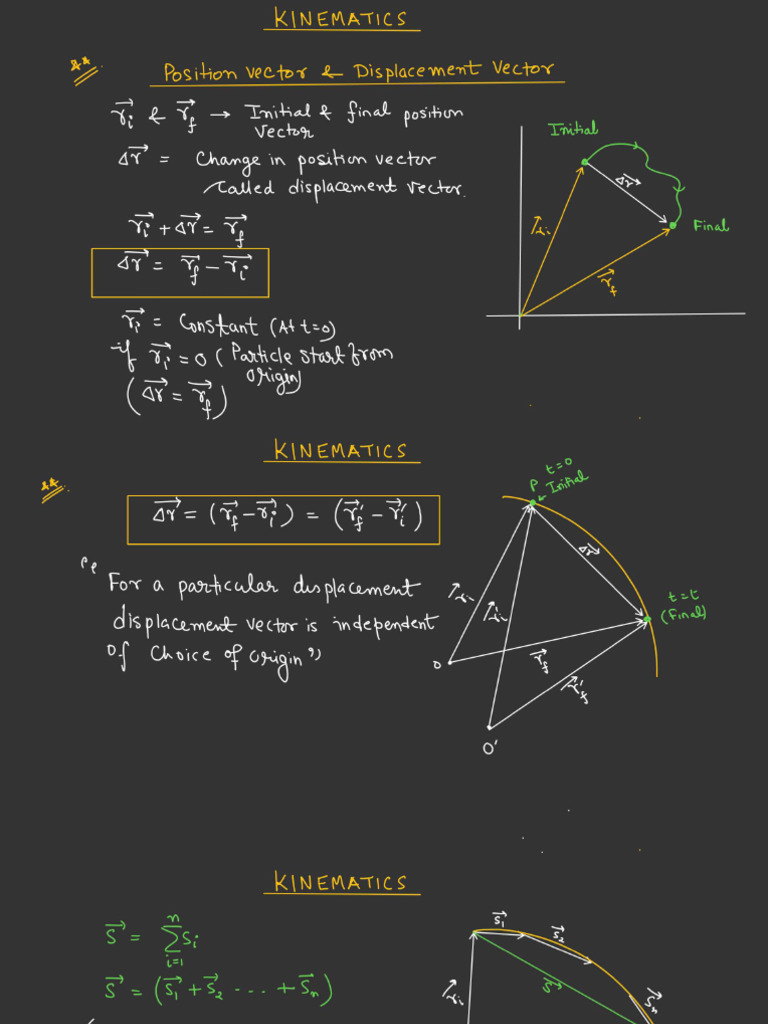 KINEMATICS
Position vector & Displacement Vector
r⃗i & r⃗f → Initial & final position
vector
Δr⃗ = Change in position vector
Called displacement vector.
r⃗i + Δr⃗ = r⃗f
Δr⃗ = r⃗f - r⃗i
r⃗i = Constant (At t=0)
if r⃗i = 0 (Particle start from
origin)
(Δr⃗ = r⃗f)
Initial
Δr⃗
Final
r⃗i
r⃗f
KINEMATICS
Δr⃗ = (r⃗f - r⃗i) = (r⃗f' - r⃗i')
"For a particular displacement
displacement vector is independent
of choice of origin"
t=0
P Initial
Δr⃗
t=t
(Final)
r⃗i
r⃗i'
r⃗f
r⃗f'
O
O'
KINEMATICS
S⃗ = n∑i=1 Si
S⃗ = (S⃗1 + S⃗2 ... + S⃗n)
S⃗1
S⃗2
S⃗
S⃗n
r⃗i